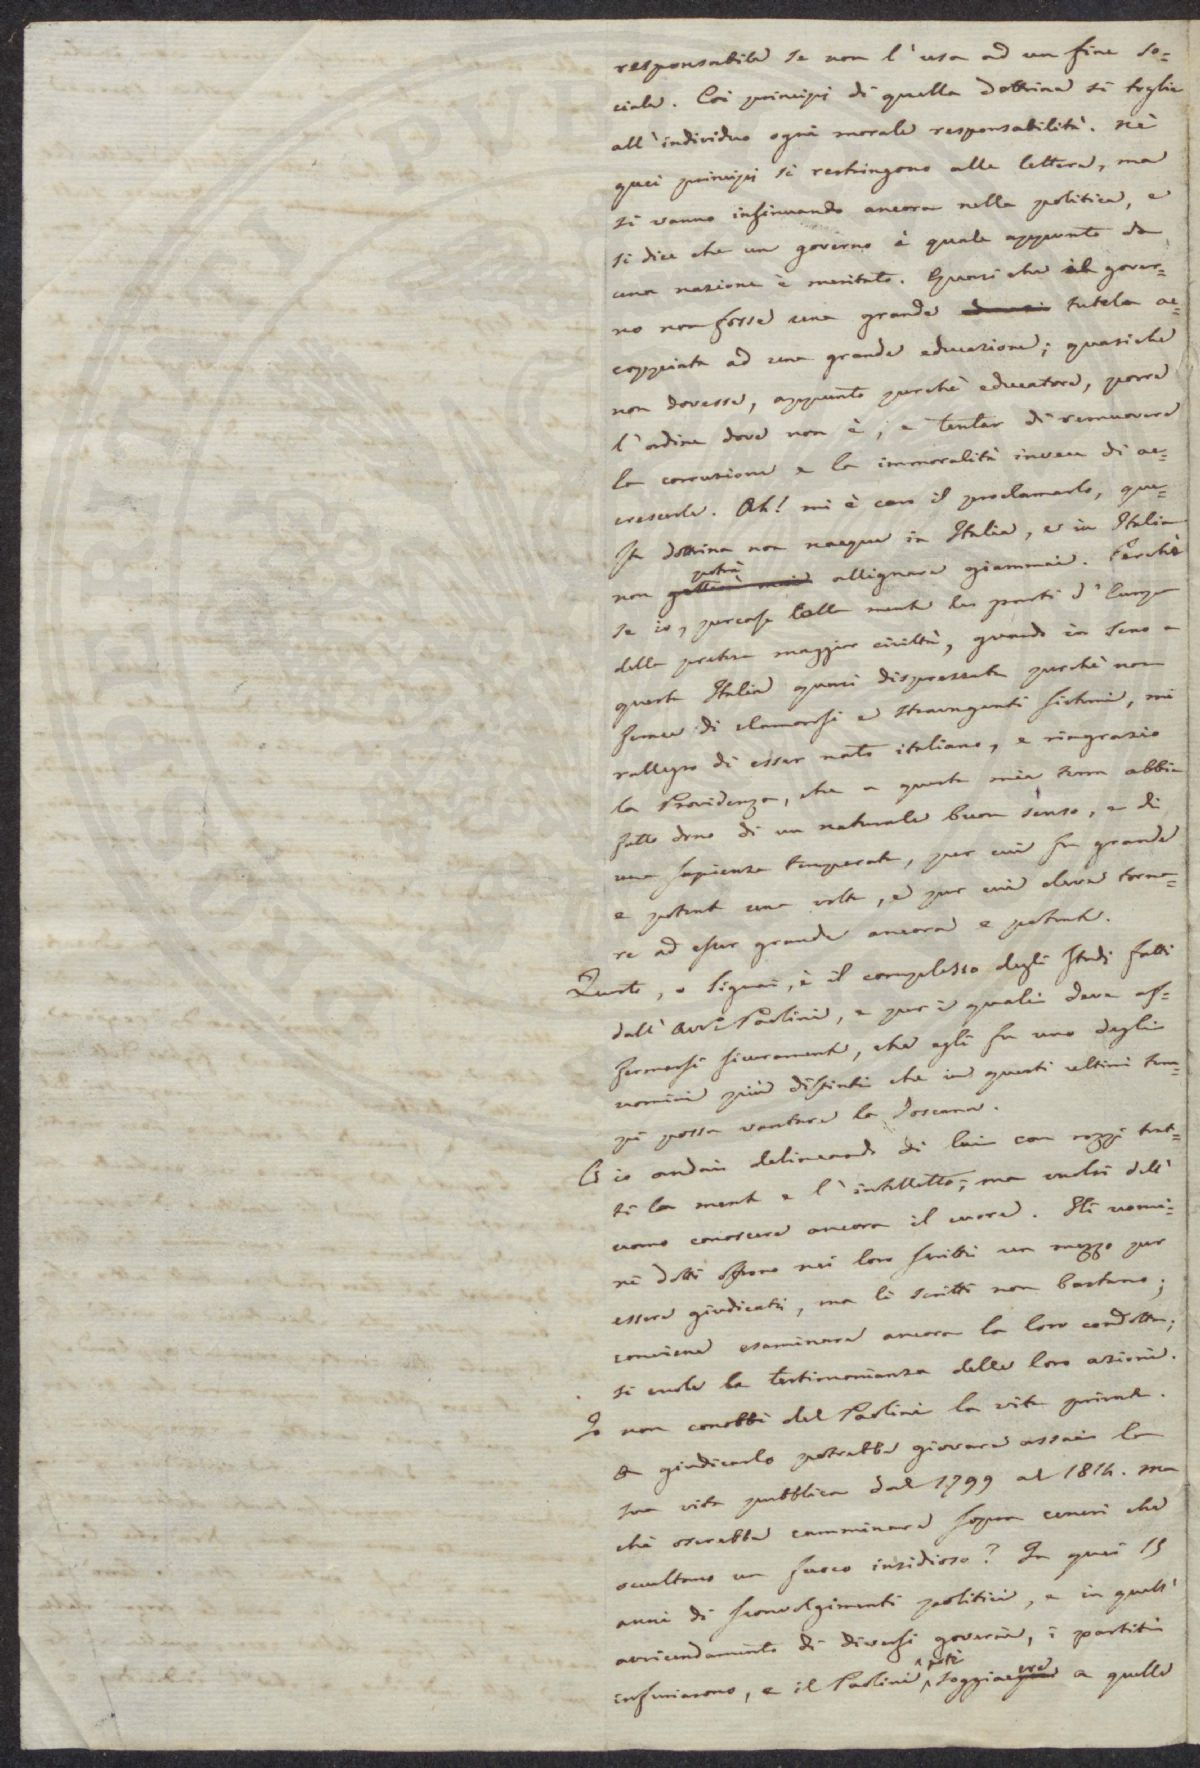 responsabile se non l'usa ad un fine so=
ciale. Coi principj di quella dottrina si toglie
all'individuo ogni morale responsabilità. Nè
quei principj si restringono alle lettere, ma
si vanno insinuando ancora nella politica, e
si dice che un governo è quale appunto da
una nazione è meritato. Quasi che il gover=
no non fosse una grande tutela ac=
coppiata ad una grande educazione; quasichè
non dovesse, appunto perchè educatore, porre
l'ordine dove non è, e tentar di remuovere
la corruzione e la immoralità invece di ac=
crescerle. Ah! mi è caro il proclamarlo, que=
sta dottrina non nacque in Italia, e in Italia
non potrà allignare giammai. Perchè
se io, percorse colla mente le parti d'Europa
della pretesa maggior civiltà, guardo in seno a
questa Italia quasi disprezzata perchè non
ferace di clamorosi e stravaganti sistemi, mi
rallegro di esser nato italiano, e ringrazio
la Providenza, che a questa mia terra abbia
fatto dono di un naturale buon senso, e di
una sapienza temperata, per cui fu grande
e potente una volta, e per cui deve torna=
re ad esser grande ancora e potente.
Questo, o Signori, è il complesso degli studj fatti
dall'Avv.º Paolini, e per i quali deve af=
fermarsi sicuramente, che egli fu uno degli
uomini più distinti che in questi ultimi tem=
pi possa vantare la Toscana.
Ed io andai delineando di lui con rozzi trat=
ti la mente e l'intelletto; ma vuolsi dell'
uomo conoscere ancora il cuore. Gli uomi=
ni dotti offrono nei loro scritti un mezzo per
essere giudicati, ma li scritti non bastano;
conviene esaminare ancora la loro condotta;
si vuole la testimonianza delle loro azioni.
Io non conobbi del Paolini la vita privata.
A giudicarlo potrebbe giovare assai la
sua vita pubblica dal 1799 al 1814. Ma
chi oserebbe camminare sopra ceneri che
occultano un fuoco insidioso? In quei 15
anni di sconvolgimenti politici, e in quell'
avvicendamento di diversi governi, i partiti
infuriarono, e il Paolini potè soggiacere a quelle